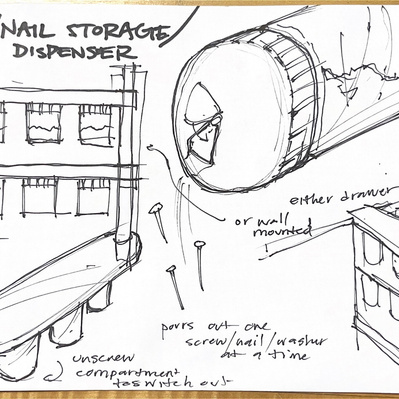 /NAIL STORAGE/
DISPENSER
either drawer
or wall
mounted
pours out one
screw/nail/washer
at a time
unscrew
compartment
to switch out